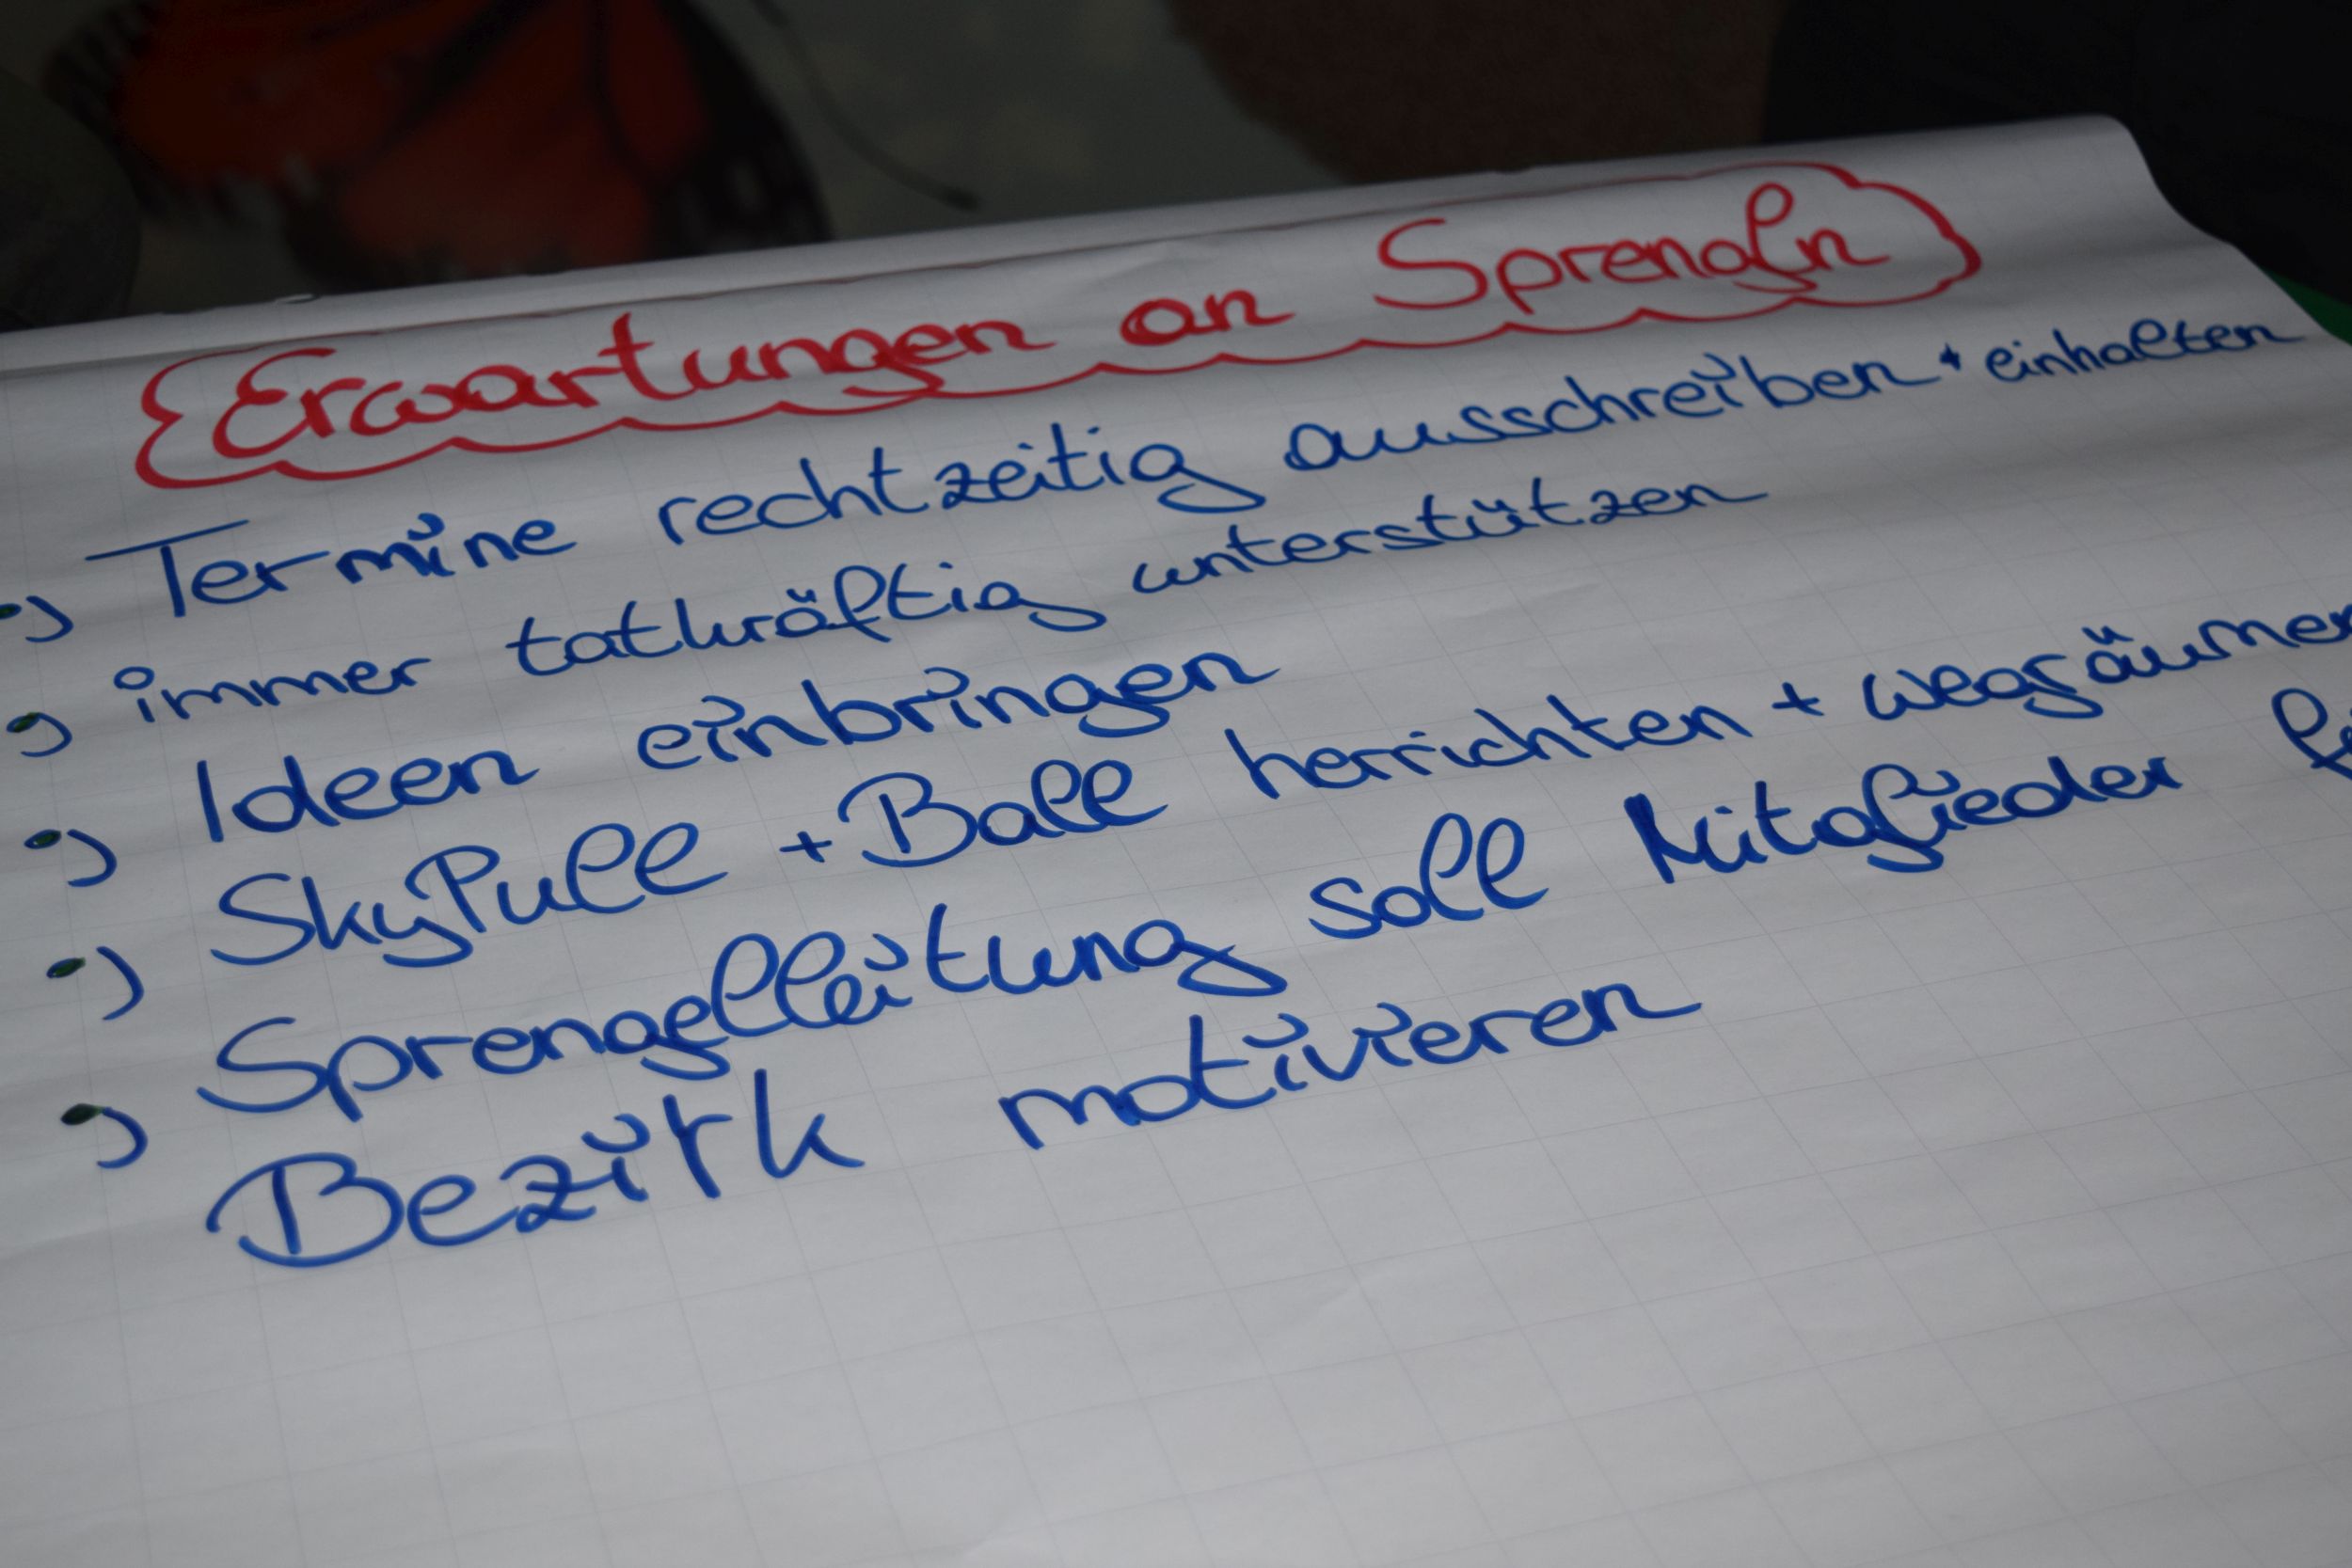 Erwartungen an Sprengln
•) Termine rechtzeitig ausschreiben + einhalten
•) immer tatkräftig unterstützen
•) Ideen einbringen
•) SkyPull + Ball herrichten + wegräumen
•) Sprengelleitung soll Mitglieder
Bezirk motivieren